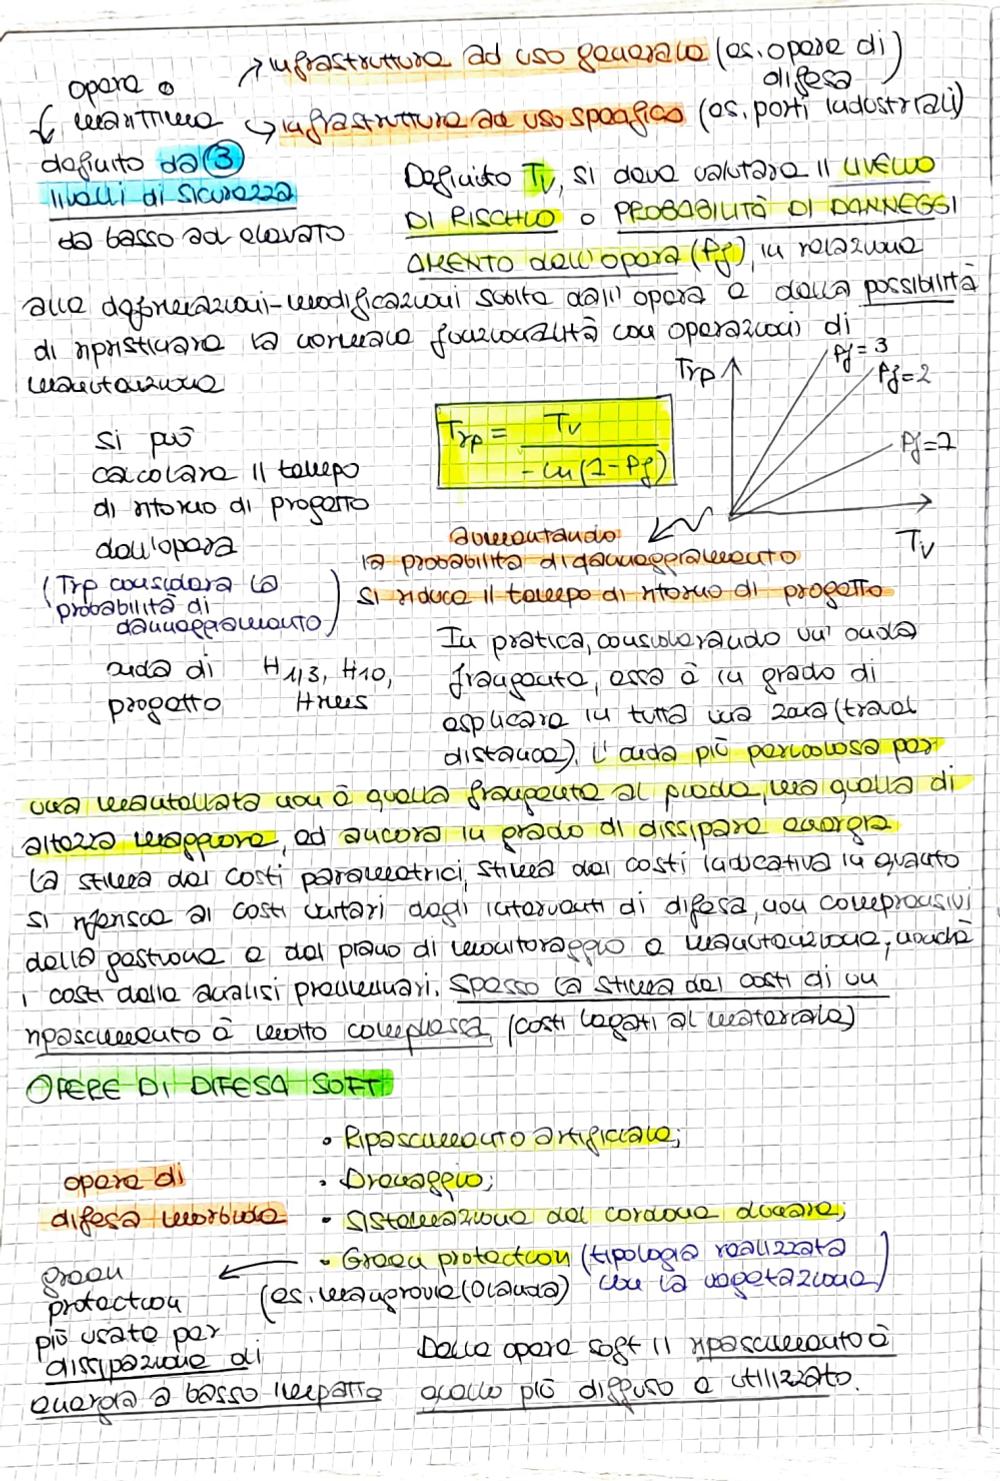 opera
marittima
→ infrastruttura ad uso generale (es. opere di difesa)
→ infrastruttura ad uso specifico (es. porti industriali)
definito da 3
livelli di sicurezza
da basso ad elevato
Definito Tv, si deve valutare il LIVELLO
DI RISCHIO o PROBABILITÀ DI DANNEGGI
AMENTO dell'opera (Pf) in relazione
alle deformazioni-modificazioni subite dall'opera e della possibilità
di ripristinare la normale funzionalità con operazioni di
manutenzione
Trp
Pf=3
Pf=2
Pf=1
Tv
Si può
calcolare il tempo
di ritorno di progetto
dell'opera
(Trp considera la
probabilità di
danneggiamento)
Trp = Tv / -ln(1-Pf)
aumentando
la probabilità di danneggiamento
si riduce il tempo di ritorno di progetto
onda di progetto H1/3, H10, Hrms
In pratica, considerando un'onda
frangente, essa è in grado di
esplicare in tutta una zona (travel
distance). L'onda più pericolosa per
una mantellata non è quella frangente al piede, ma quella di
altezza maggiore, ed ancora in grado di dissipare energia
La stima dei costi parametrici, stima dei costi indicativa in quanto
si riferisce ai costi unitari degli interventi di difesa, non comprensivi
della gestione e del piano di monitoraggio e manutenzione, nonché
i costi delle analisi preliminari. Spesso la stima dei costi di un
ripascimento è molto complessa (costi legati al materiale)
OPERE DI DIFESA SOFT
opere di
difesa morbide
• Ripascimento artificiale;
• Drenaggio;
• Sistemazione del cordone dunare;
• Green protection (tipologia realizzata
con la vegetazione)
(es. mangrovie (Olanda)
green
protection
più usate per
dissipazione di
energia a basso impatto
Delle opere soft il ripascimento è
quello più diffuso e utilizzato.